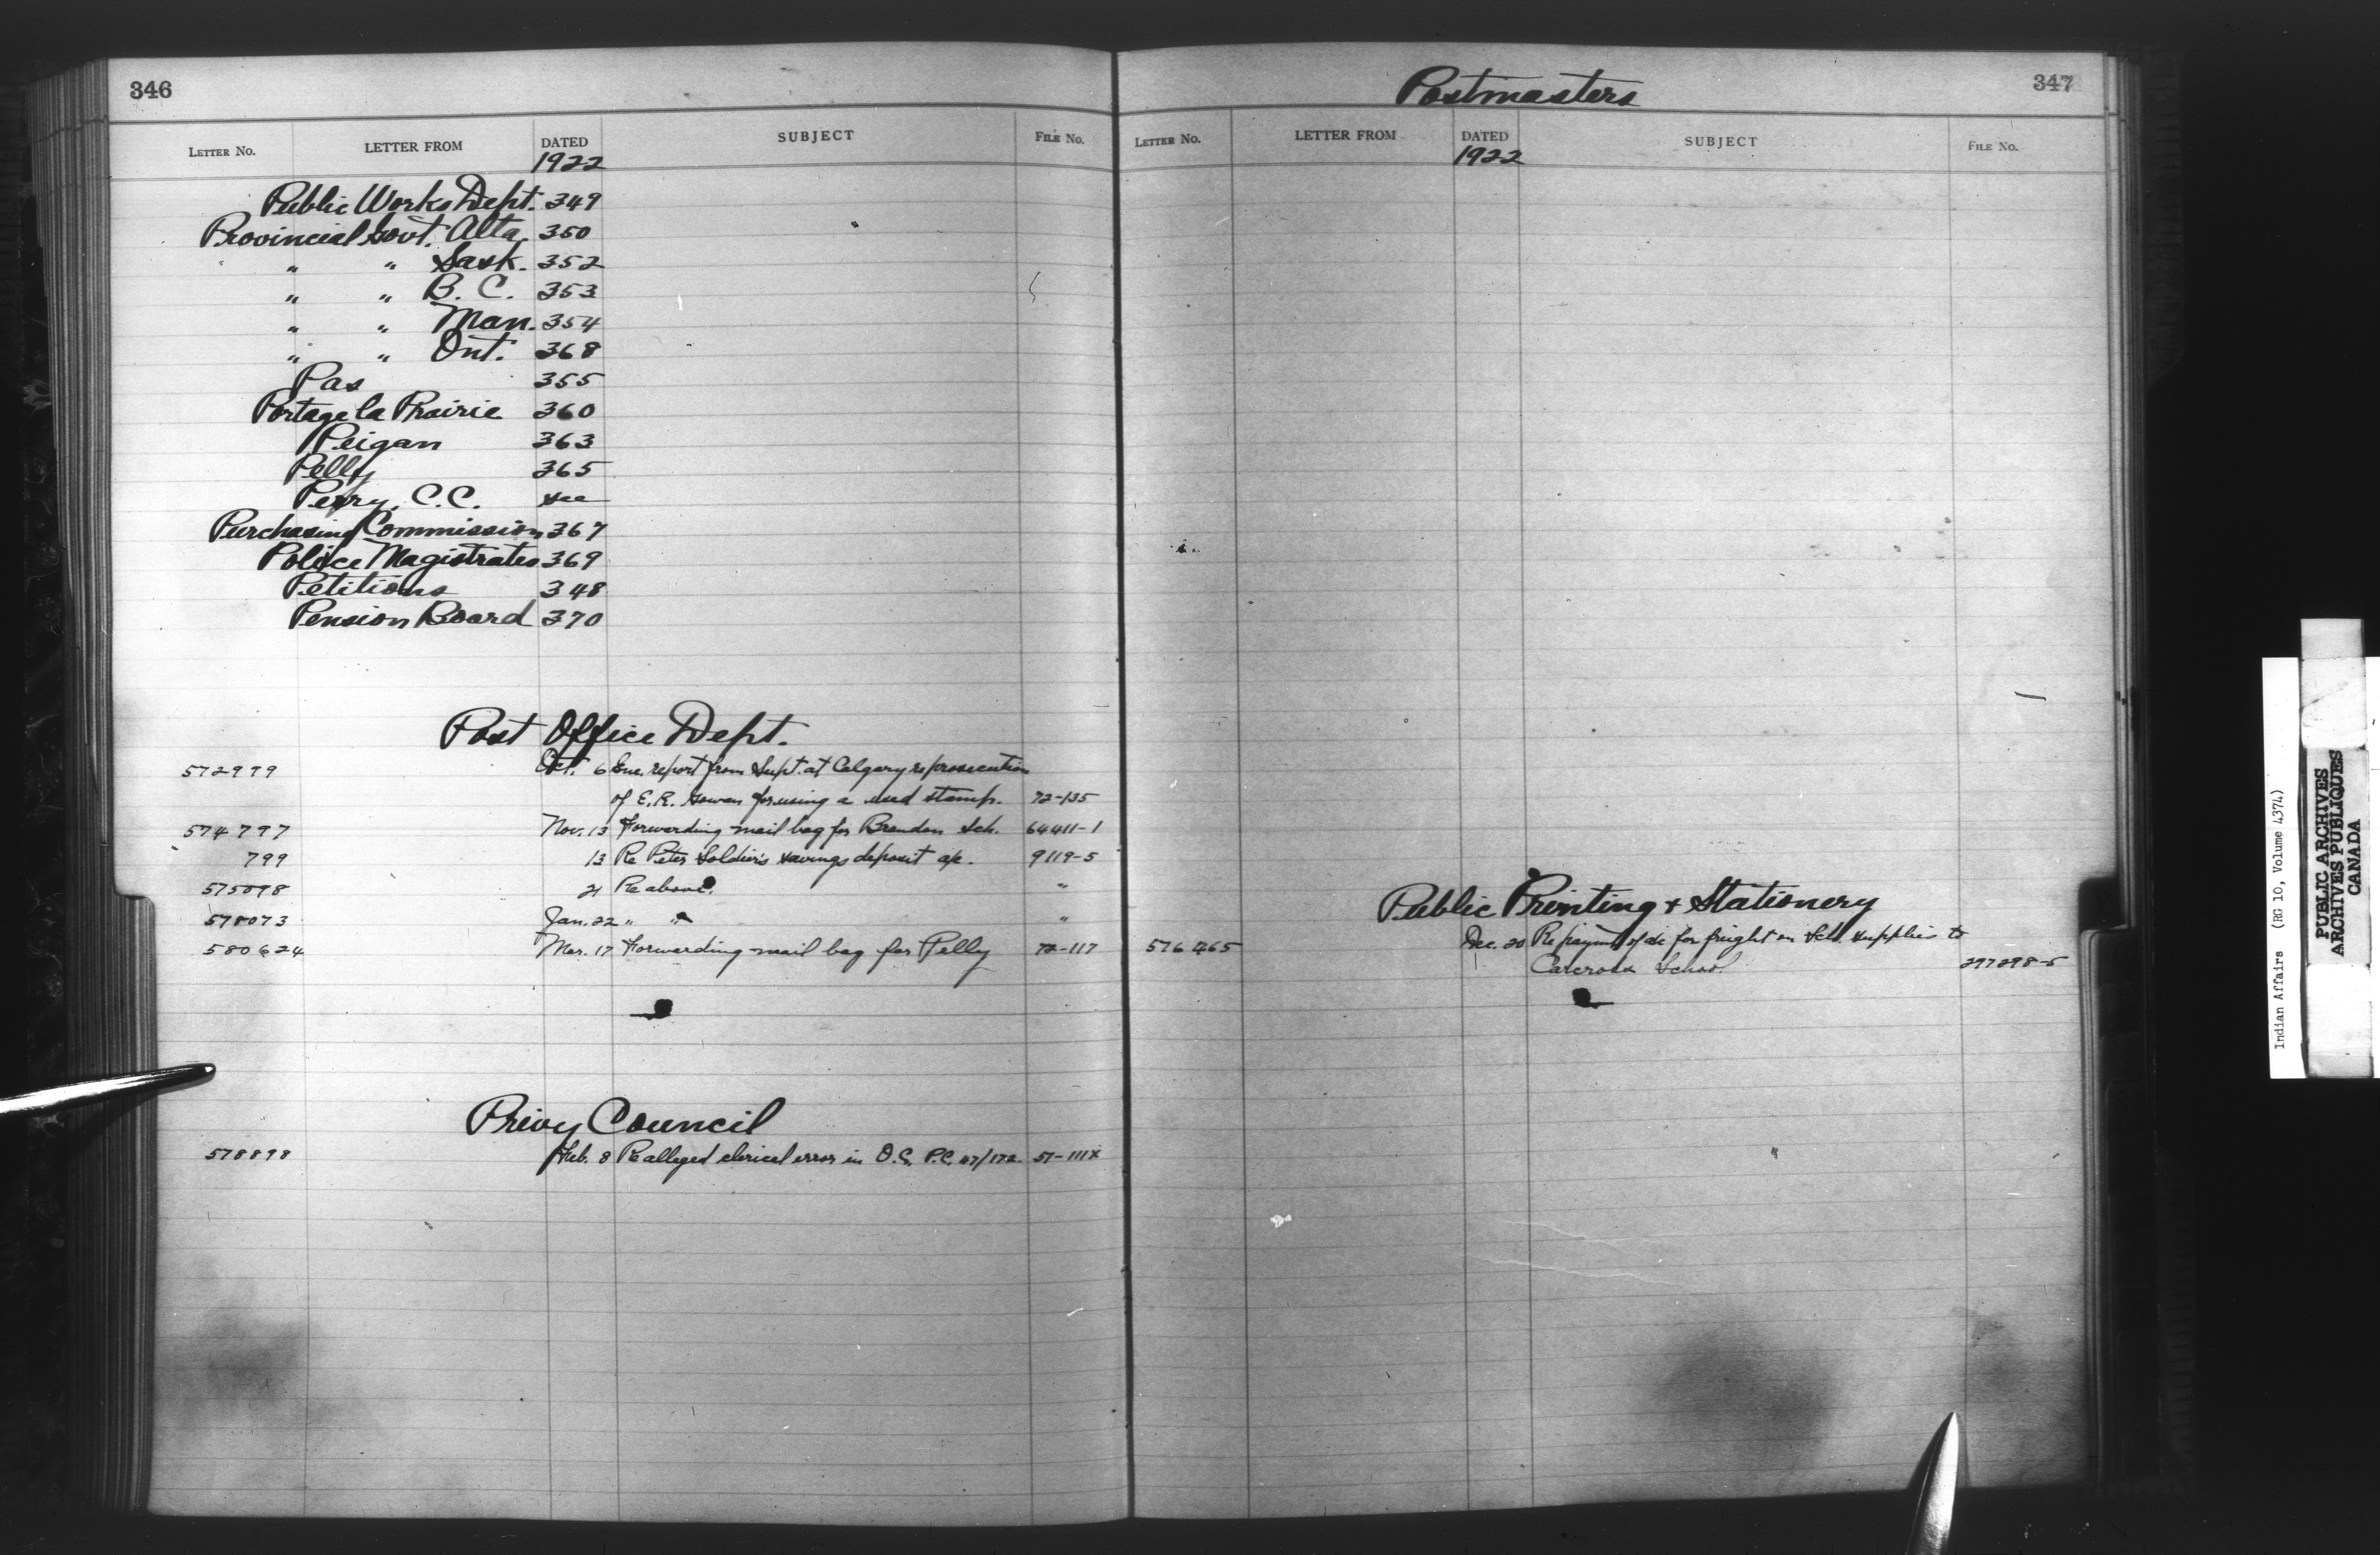 346
LETTER NO. LETTER FROM DATED SUBJECT FILE NO.
1922
Public Works Dept. 349
Provincial Govt. Alta. 350
" " Sask. 352
" " B. C. 353
" " Man. 354
" " Ont. 368
Pas 355
Portage la Prairie 360
Peigan 363
Pelly 365
Perry, C.C. see
Purchasing Commission 367
Police Magistrates 369
Petitions 348
Pension Board 370
Post Office Dept.
572979 Oct. 6 Enc. report from Supt. at Calgary re prosecution
of E. R. Gowan for using a used stamp. 72-135
574797 Nov. 13 Forwarding mail bag for Brandon Sch. 64411-1
799 13 Re Peter Soldier's savings deposit a/c. 9119-5
575098 21 Re above. "
578073 Jan. 22 " " "
580624 Mar. 17 Forwarding mail bag for Pelly 72-117
Privy Council
578898 Feb. 8 Re alleged clerical error in O.C. P.C. 47/172 57-111
Postmasters
347
LETTER NO. LETTER FROM DATED SUBJECT FILE NO.
1922
Public Printing & Stationery
576765 Dec. 20 Re payment of a/c for freight on Sch. supplies to
Carcross School 297298-5
Indian Affairs (RG 10, Volume 4374)
PUBLIC ARCHIVES
ARCHIVES PUBLIQUES
CANADA